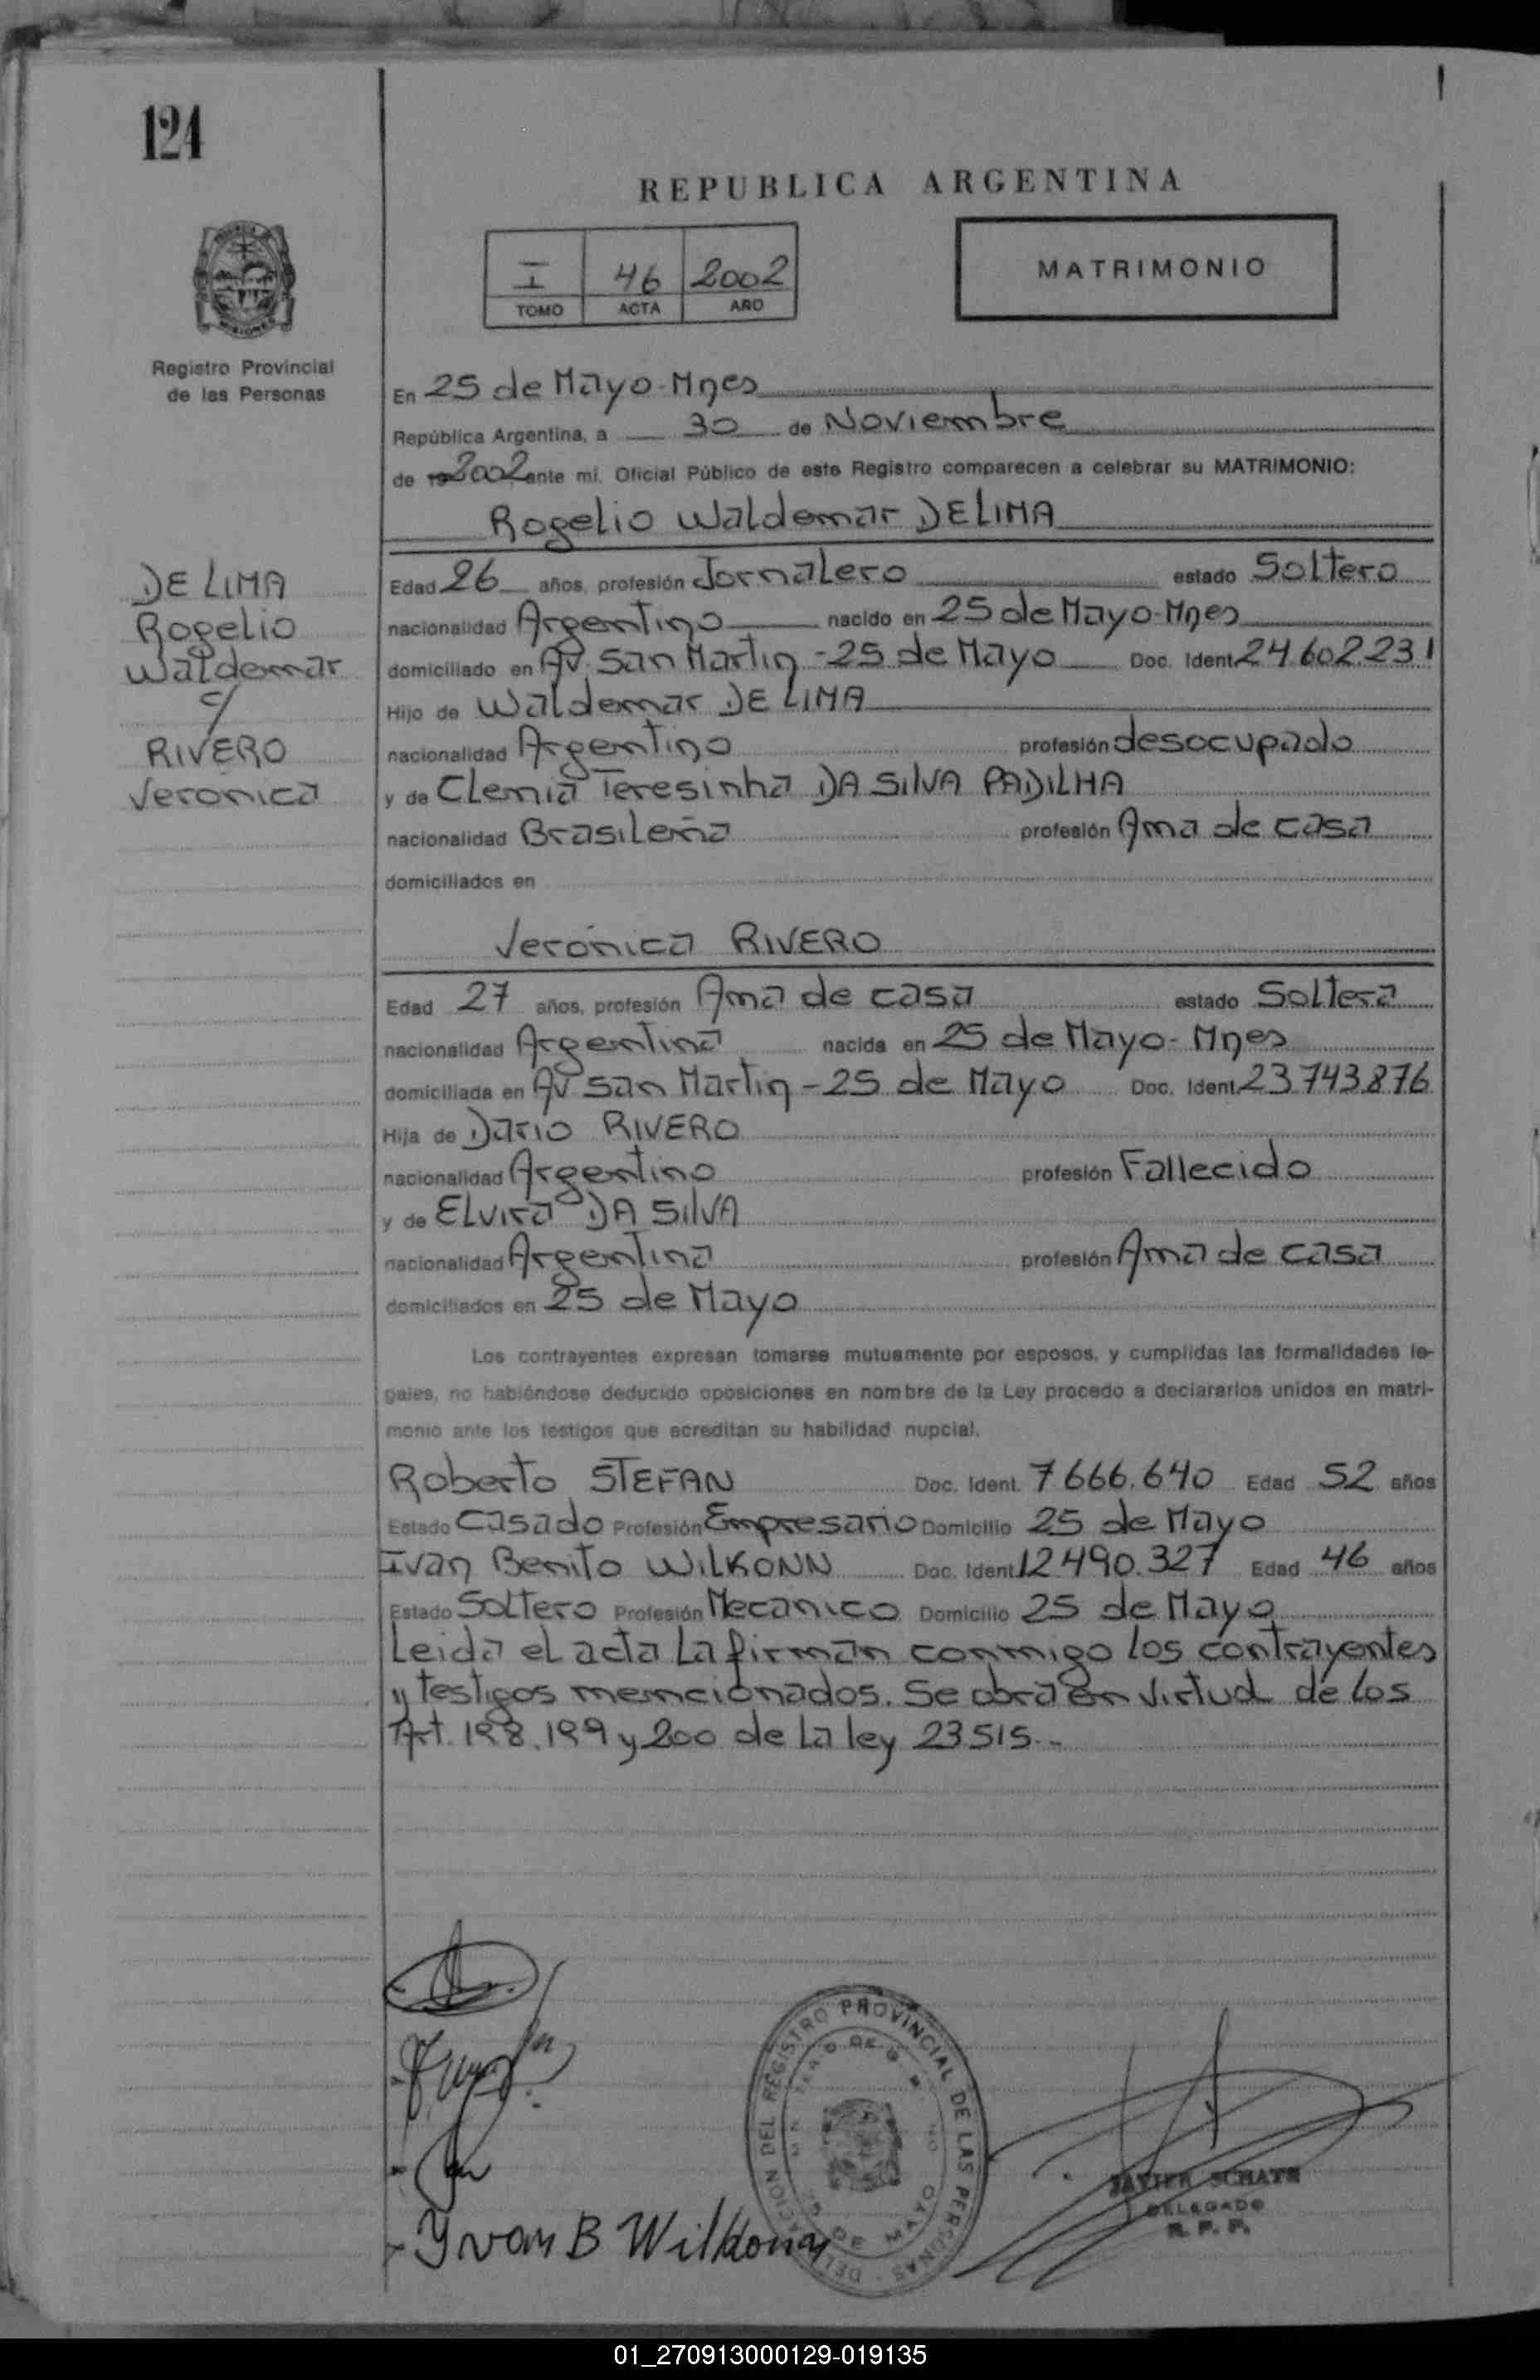 124
REPUBLICA ARGENTINA
I 46 2002
TOMO ACTA AÑO
MATRIMONIO
Registro Provincial
de las Personas
En 25 de Mayo-Mnes
República Argentina, a 30 de Noviembre
de 19 2002 ante mi, Oficial Público de este Registro comparecen a celebrar su MATRIMONIO:
Rogelio Waldemar DE LIMA
DE LIMA
Rogelio
Waldemar
c/
RIVERO
Verónica
Edad 26 años, profesión Jornalero estado Soltero
nacionalidad Argentino nacido en 25 de Mayo-Mnes
domiciliado en Av. San Martin - 25 de Mayo Doc. Ident. 24.602.231
Hijo de Waldemar DE LIMA
nacionalidad Argentino profesión desocupado
y de Clemia Teresinha DA SILVA PADILHA
nacionalidad Brasileña profesión Ama de casa
domiciliados en
Verónica RIVERO
Edad 27 años, profesión Ama de casa estado Soltera
nacionalidad Argentina nacida en 25 de Mayo-Mnes
domiciliada en Av San Martin - 25 de Mayo Doc. Ident. 23.743.876
Hija de Dario RIVERO
nacionalidad Argentino profesión Fallecido
y de Elvira DA SILVA
nacionalidad Argentina profesión Ama de casa
domiciliados en 25 de Mayo
Los contrayentes expresan tomarse mutuamente por esposos, y cumplidas las formalidades le-
gales, no habiéndose deducido oposiciones en nombre de la Ley procedo a declararlos unidos en matri-
monio ante los testigos que acreditan su habilidad nupcial.
Roberto STEFAN Doc. Ident. 7.666.640 Edad 52 años
Estado Casado Profesión Empresario Domicilio 25 de Mayo
Ivan Benito WILKONN Doc. Ident. 12.490.327 Edad 46 años
Estado Soltero Profesión Mecanico Domicilio 25 de Mayo
Leida el acta la firman conmigo los contrayentes
y testigos memcionados. Se obra en virtud de los
Art. 198.199 y 200 de la ley 23.515.-
DELEGACION DEL REGISTRO PROVINCIAL DE LAS PERSONAS
25 DE MAYO
Yvan B Wilkonn
JAVIER SCHATZ
DELEGADO
R. P. P.
01_270913000129-019135